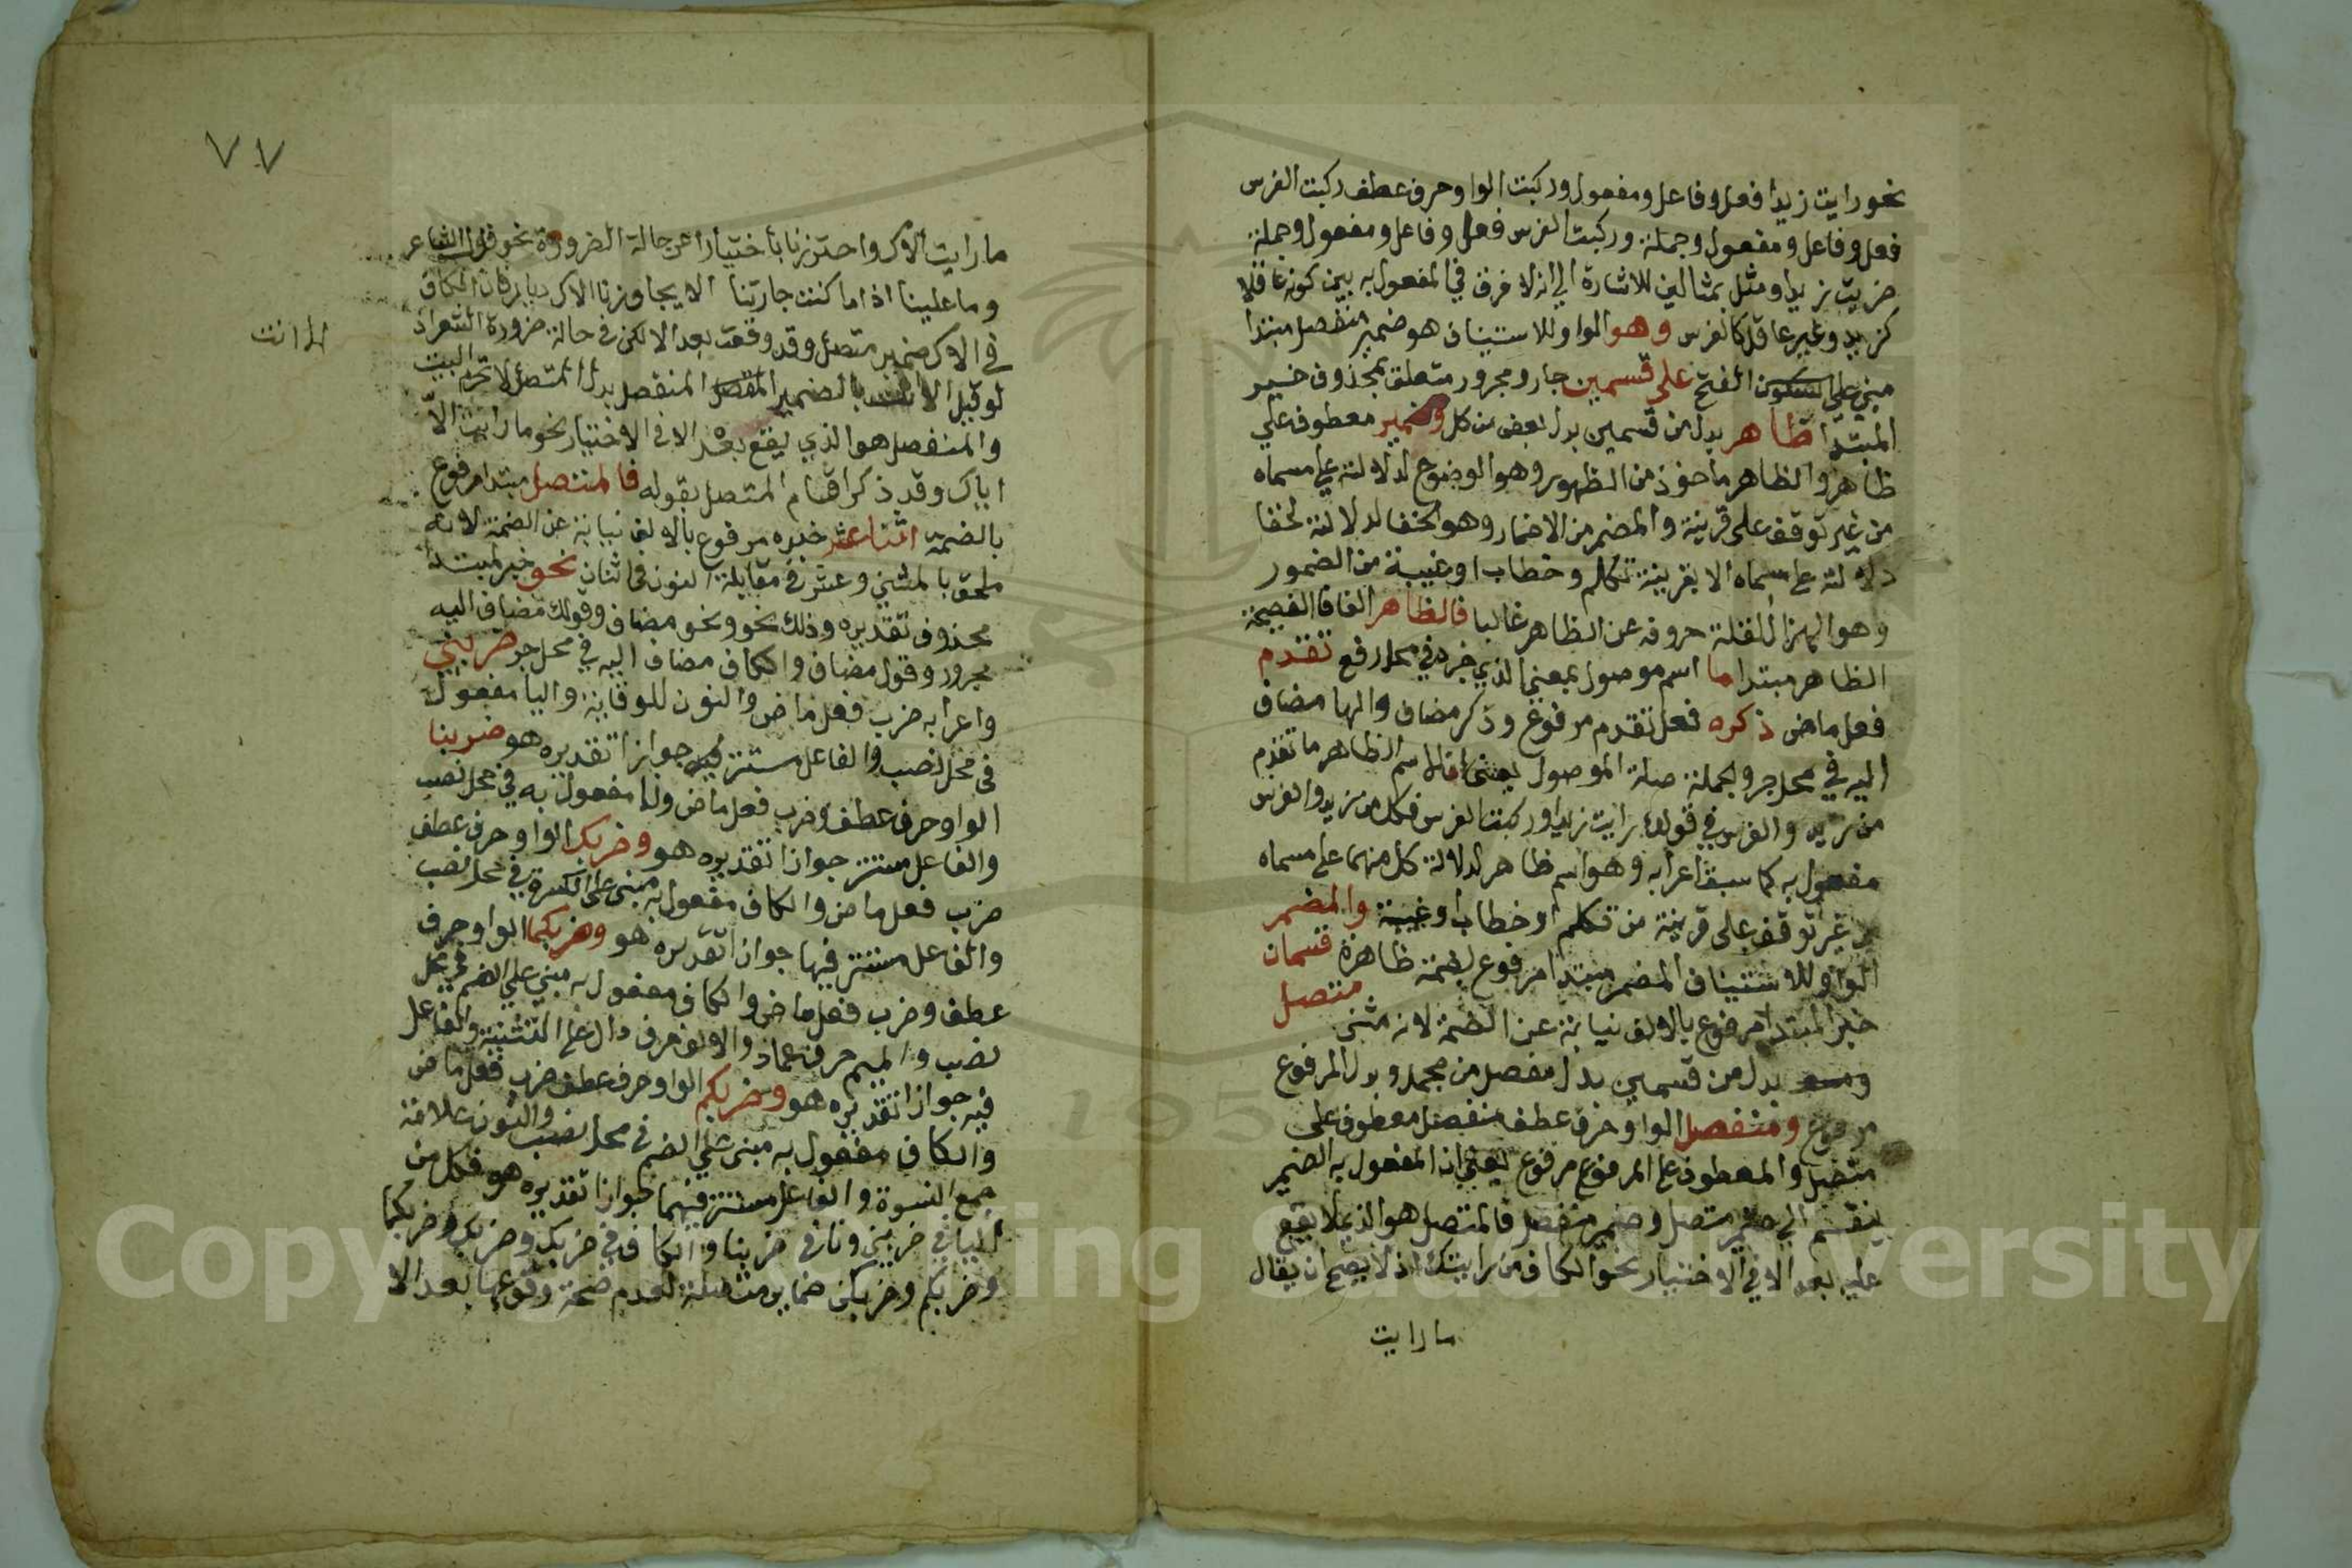 نحو رايت زيدا فعل وفاعل ومفعول وركبت الواو حرف عطف ركبت الفرس
فعل وفاعل ومفعول وجملة وركبت الفرس فعل وفاعل ومفعول وجملة
ضربت زيدا ومثل بمثالين للاشارة الي انه لا فرق في المفعول به بين كونه عاقلا
كزيد وغير عاقل كالفرس وهو الواو للاستيناف هو ضمير منفصل مبتدا
مبني علي السكون الفتح على قسمين جار ومجرور متعلق بمحذوف خبر
المبتدا ظاهر بدل من قسمين بدل بعض من كل ومضمر معطوف علي
ظاهر والظاهر ماخوذ من الظهور وهو الوضوح لدلالته علي مسماه
من غير توقف على قرينة والمضمر من الاضمار وهو الخفا لدلالته لخفا
دلالته علي مسماه الا بقرينة تكلم وخطاب او غيبة من الضمور
وهو الهزال لقلة حروفه عن الظاهر غالبا فالظاهر الفا فا الفصيحة
الظاهر مبتدا ما اسم موصول بمعني الذي خبره في محل رفع تقدم
فعل ماض ذكره فعل تقدم مرفوع وذكر مضاف والها مضاف
اليه في محل جر والجملة صلة الموصول يعني الاسم الظاهر ما تقدم
من زيد والفرس في قوله رايت زيدا وركبت الفرس فكل من زيد والفرس
مفعول به كما سبق اعرابه وهو اسم ظاهر لدلالة كل منهما علي مسماه
من غير توقف على قرينة من تكلم او خطاب او غيبة والمضمر
الواو للاستيناف المضمر مبتدا مرفوع بضمة ظاهرة قسمان
خبر المبتدا مرفوع بالالف نيابة عن الضمة لانه مثنى متصل
بدل من قسمين بدل مفصل من مجمل وبدل المرفوع
مرفوع ومنفصل الواو حرف عطف منفصل معطوف على
متصل والمعطوف علي المرفوع مرفوع يعني ان المفعول به الضمير
ينقسم الي ضمير متصل وضمير منفصل فالمتصل هو الذي لا يقع
عليه بعد الا في الاختيار نحو الكاف من رايتك اذ لا يصح ان يقال
ما رايت
٧٧
ما رايت الاك واحترزنا باختيارا عن حالة الضرورة نحو قول الشاعر
وما علينا اذا ما كنت جارتنا الا يجاورنا الاك ديار فان الكاف
في الاك ضمير متصل وقد وقعت بعد الا لكن في حالة ضرورة الشعر اذ
لو قيل الا انت بالضمير المنفصل بدل المتصل لا تحزم البيت
الا انت
والمنفصل هو الذي يقع بعد الا في الاختيار نحو ما رايت الا
اياك وقد ذكر اقسام المتصل بقوله فالمتصل مبتدا مرفوع
بالضمة اثنا عشر خبره مرفوع بالالف نيابة عن الضمة لانه
ملحق بالمثني وعشر في مقابلة النون في اثنان نحو خبر لمبتدا
محذوف تقديره وذلك نحو ونحو مضاف وقولك مضاف اليه
مجرور وقول مضاف والكاف مضاف اليه في محل جر ضربني
واعرابه ضرب فعل ماض والنون للوقاية واليا مفعول
في محل نصب والفاعل مستتر فيه جوازا تقديره هو ضربنا
الواو حرف عطف وضرب فعل ماض ونا مفعول به في محل نصب
والفاعل مستتر جوازا تقديره هو وضربك الواو حرف عطف
ضرب فعل ماض والكاف مفعول به مبني على الكسرة في محل نصب
والفاعل مستتر فيها جوازا تقديره هو وضربكما الواو حرف
عطف وضرب فعل ماض والكاف مفعول به مبني علي الضم في محل
نصب والميم حرف عماد والالف حرف دال علي التثنية والفاعل
فيه جوازا تقديره هو وضربكم الواو حرف عطف ضرب فعل ماض
والكاف مفعول به مبني علي الضم في محل نصب والنون علامة
جمع النسوة والفاعل مستتر فيهما جوازا تقديره هو فكل من
اليا في ضربني ونا في ضربنا والكاف في ضربك وضربك وضربكما
وضربكم وضربكن ضماير متصلة لعدم صحة وقوعها بعد الا
Copyright © King Saud University
195